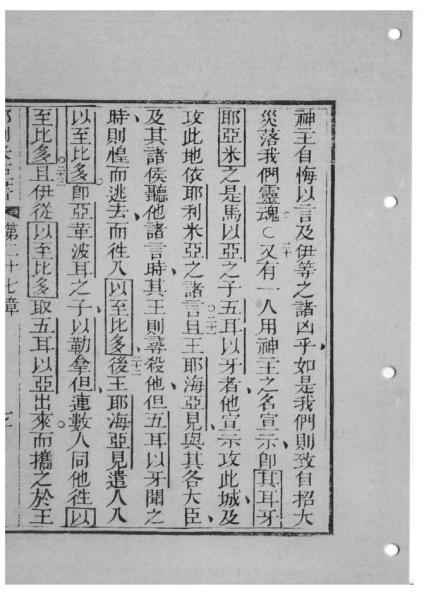 神王自悔以言及伊等之諸凶乎如是我們則致自招大
災落我們靈魂○二十又有一人用神王之名宣示即其耳牙
耶亞米之是馬以亞之子五耳以牙者他宣示攻此城及
攻此地依耶利米亞之諸言○二一且王耶海亞見與其各大臣
及其諸侯聽他諸言時其王則尋殺他但五耳以牙聞之
時則惶而逃去而徃入以至比多○二二後王耶海亞見遣人入
以至比多即亞革波耳之子以勒拿但連數人同他徃以
至比多○二三且伊從以至比多取五耳以亞出來而攜之於王
第二十七章